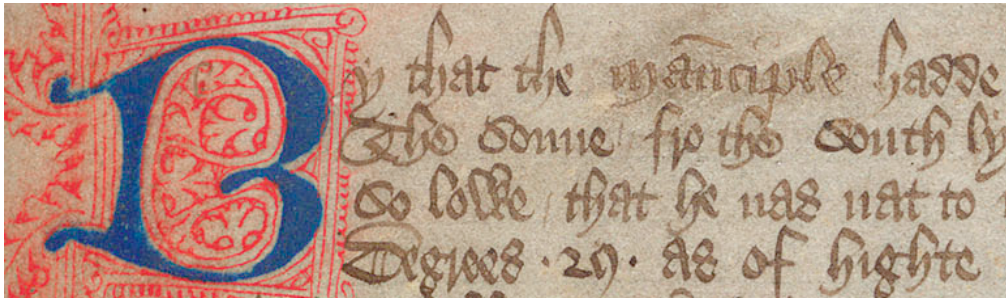 By that the mauciple hadde
The Sonne fro the South ly
So lowe that he nas nat to
Degrees .29. as of highte